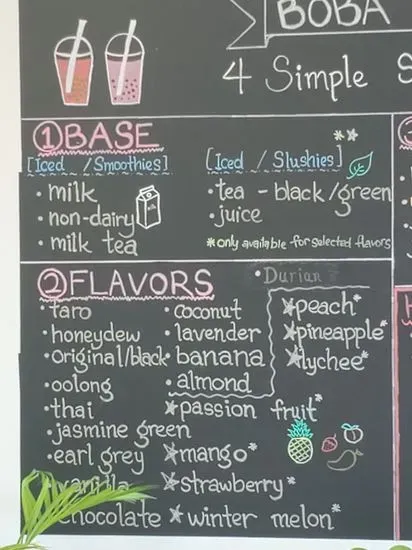 BOBA
4 Simple S
①BASE
[Iced /Smoothies]
• milk
• non-dairy
• milk tea
**
[Iced / Slushies]
• tea - black/green
• juice
*only available for selected flavors
②FLAVORS
• Durian
• taro
• honeydew
• original/black
• oolong
• thai
• jasmine green
• earl grey
• vanilla
chocolate
• coconut
• lavender
• banana
• almond
★passion fruit*
★mango*
★strawberry*
★winter melon*
★peach*
★pineapple*
★lychee*